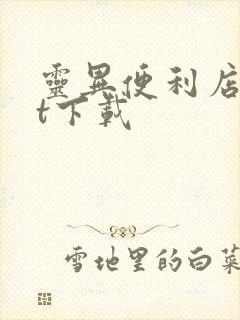 靈異便利店
t下載
雪地里的白菜